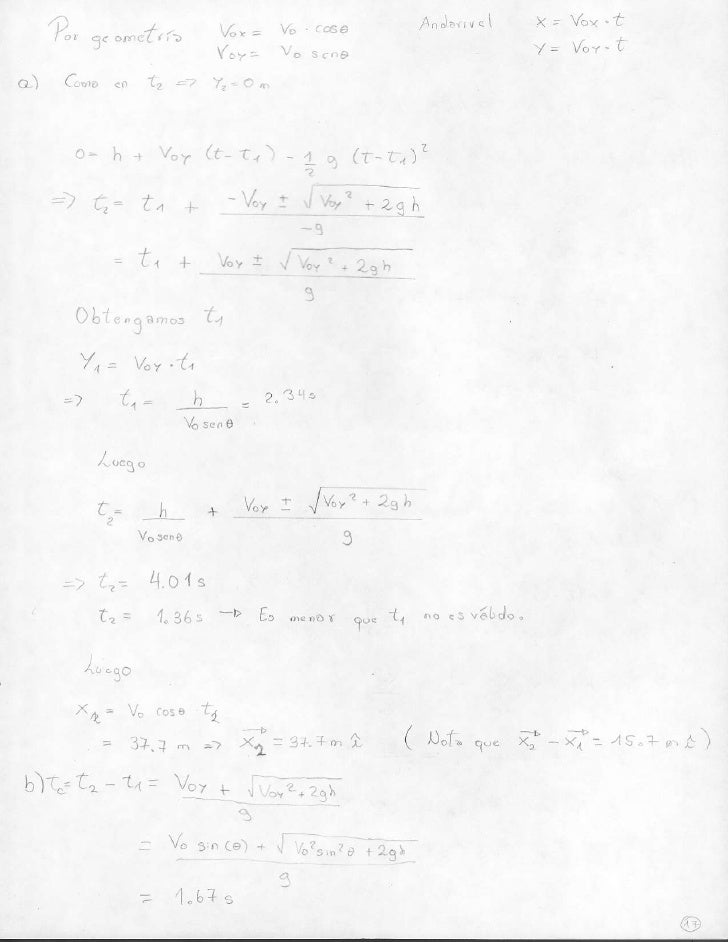 Por geometría Vox = Vo · cosθ Andarivel X = Vox · t
Voy = Vo senθ Y = Voy · t
a) Como en t₂ => Y₂=0 m
0 = h + Voy (t - t₁) - 1/2 g (t - t₁)²
=> t₂ = t₁ + (-Voy ± √(Voy² + 2gh)) / -g
= t₁ + (Voy ± √(Voy² + 2gh)) / g
Obtengamos t₁
Y₁ = Voy · t₁
=> t₁ = h / (Vo senθ) = 2.34s
Luego
t₂ = h / (Vo senθ) + (Voy ± √(Voy² + 2gh)) / g
=> t₂ = 4.01s
t₂ = 1.36s → Es menor que t₁ no es válido.
Luego
X₂ = Vo cosθ t₂
= 37.7 m => X⃗₂ = 37.7m î ( Nota que X⃗₂ - X⃗₁ = 15.7 m î )
b) tc = t₂ - t₁ = (Voy + √(Voy² + 2gh)) / g
= (Vo sin(θ) + √(Vo² sin²θ + 2gh)) / g
= 1.67s
17